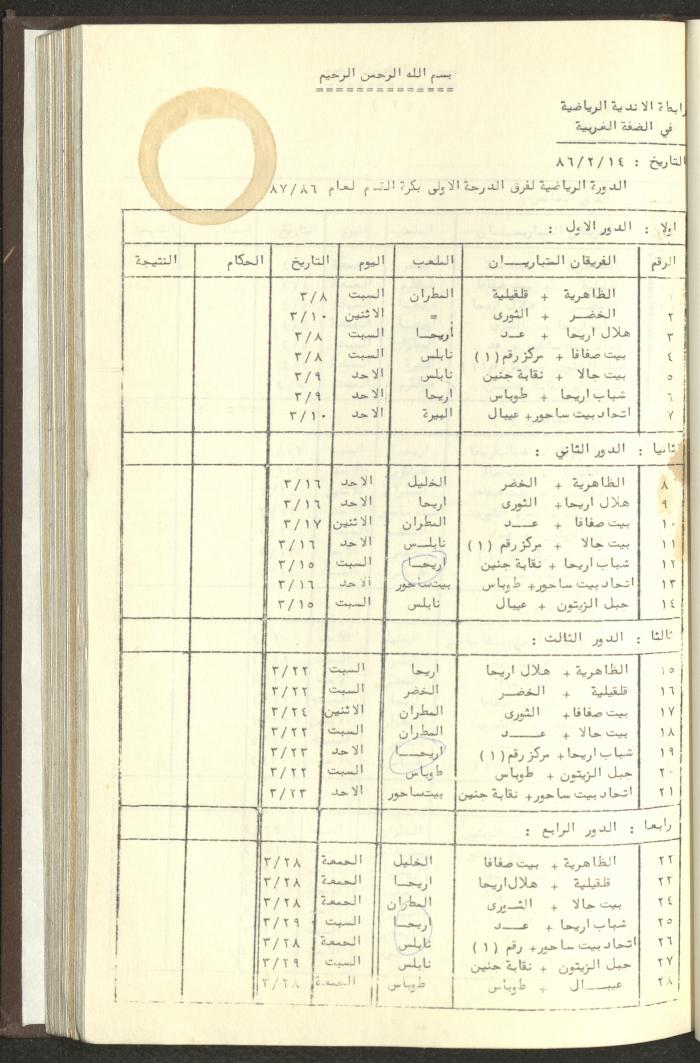 بسم الله الرحمن الرحيم
رابطة الاندية الرياضية
في الضفة الغربية
التاريخ : ٨٦/٢/١٤
الدورة الرياضية لفرق الدرجة الاولى بكرة القدم لعام ٨٧/٨٦
اولا : الدور الاول :
الرقم الفريقان المتباريـــان الملعب اليوم التاريخ الحكام النتيجة
١ الظاهرية + قلقيلية المطران السبت ٣/٨
٢ الخضـر + الثورى = الاثنين ٣/١٠
٣ هلال اريحا + عــد أريحـا السبت ٣/٨
٤ بيت صفافا + مركز رقم (١) نابلس السبت ٣/٨
٥ بيت جالا + نقابة جنين نابلس الاحد ٣/٩
٦ شباب اريحا + طوباس اريحا الاحد ٣/٩
٧ اتحاد بيت ساحور + عيبال البيرة الاحد ٣/١٠
ثانيا : الدور الثاني :
٨ الظاهرية + الخضر الخليل الاحد ٣/١٦
٩ هلال اريحا + الثورى اريحا الاحد ٣/١٦
١٠ بيت صفافا + عـــد المطران الاثنين ٣/١٧
١١ بيت جالا + مركز رقم (١) نابلـس الاحد ٣/١٦
١٢ شباب اريحا + نقابة جنين اريحـا السبت ٣/١٥
١٣ اتحاد بيت ساحور + طوباس بيت ساحور الاحد ٣/١٦
١٤ جبل الزيتون + عيبال نابلس السبت ٣/١٥
ثالثا : الدور الثالث :
١٥ الظاهرية + هلال اريحا اريحا السبت ٣/٢٢
١٦ قلقيلية + الخضـر الخضر السبت ٣/٢٢
١٧ بيت صفافا + الثورى المطران الاثنين ٣/٢٤
١٨ بيت جالا + عــــد المطران السبت ٣/٢٢
١٩ شباب اريحا + مركز رقم (١) اريحــا الاحد ٣/٢٣
٢٠ جبل الزيتون + طوباس طوباس السبت ٣/٢٢
٢١ اتحاد بيت ساحور + نقابة جنين بيت ساحور الاحد ٣/٢٣
رابعا : الدور الرابع :
٢٢ الظاهرية + بيت صفافا الخليل الجمعة ٣/٢٨
٢٣ قلقيلية + هلال اريحا اريحـا الجمعة ٣/٢٨
٢٤ بيت جالا + الثـورى المطران الجمعة ٣/٢٨
٢٥ شباب اريحا + عـــد اريحـا السبت ٣/٢٩
٢٦ اتحاد بيت ساحور + رقم (١) نابلس الجمعة ٣/٢٨
٢٧ جبل الزيتون + نقابة جنين نابلس السبت ٣/٢٩
٢٨ عيبـــال + طوباس طوباس الجمعة ٣/٢٨